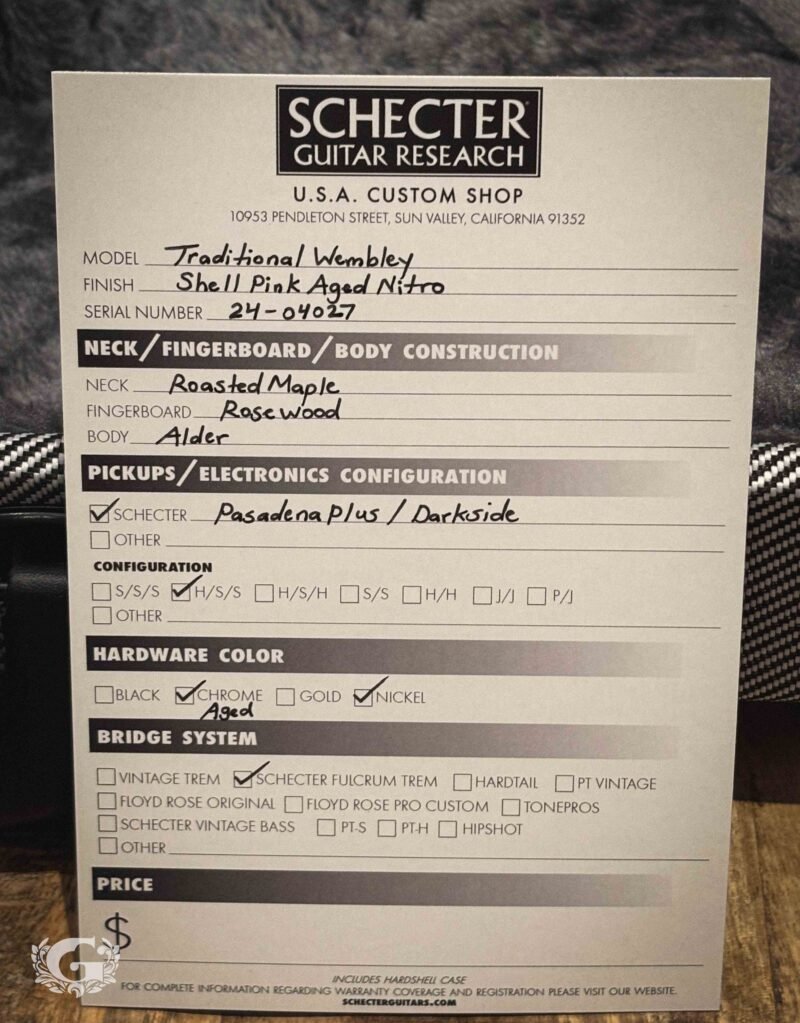 SCHECTER
GUITAR RESEARCH
U.S.A. CUSTOM SHOP
10953 PENDLETON STREET, SUN VALLEY, CALIFORNIA 91352
MODEL Traditional Wembley
FINISH Shell Pink Aged Nitro
SERIAL NUMBER 24-04027
NECK/FINGERBOARD/BODY CONSTRUCTION
NECK Roasted Maple
FINGERBOARD Rosewood
BODY Alder
PICKUPS/ELECTRONICS CONFIGURATION
SCHECTER Pasadena Plus / Darkside
OTHER
CONFIGURATION
S/S/S H/S/S H/S/H S/S H/H J/J P/J
OTHER
HARDWARE COLOR
BLACK CHROME GOLD NICKEL
Aged
BRIDGE SYSTEM
VINTAGE TREM SCHECTER FULCRUM TREM HARDTAIL PT VINTAGE
FLOYD ROSE ORIGINAL FLOYD ROSE PRO CUSTOM TONEPROS
SCHECTER VINTAGE BASS PT-S PT-H HIPSHOT
OTHER
PRICE
$
G
INCLUDES HARDSHELL CASE
FOR COMPLETE INFORMATION REGARDING WARRANTY COVERAGE AND REGISTRATION PLEASE VISIT OUR WEBSITE.
SCHECTERGUITARS.COM